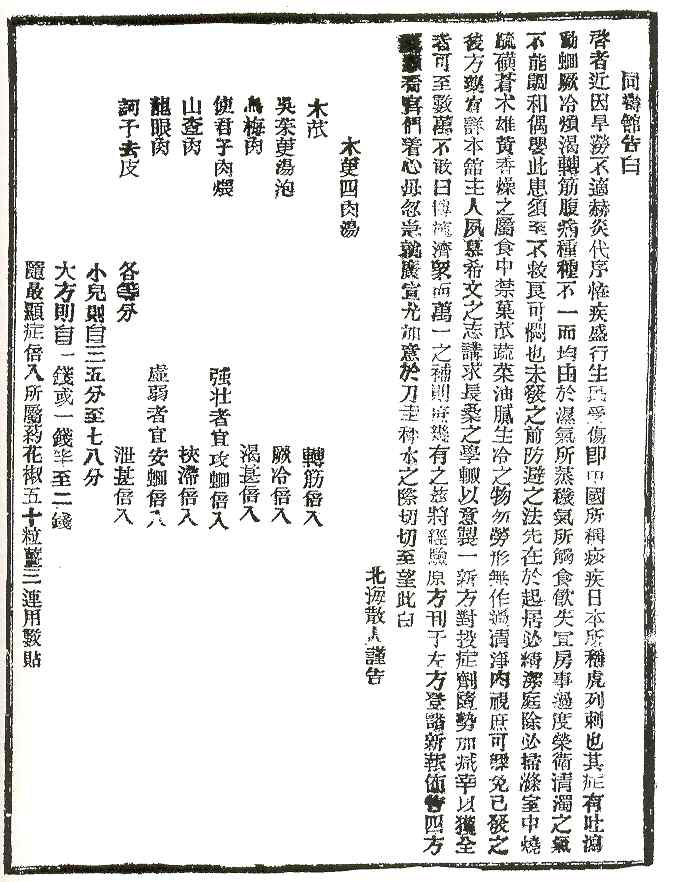 同壽館告白
啓者近因旱澇不適赫炎代序恠疾盛行生民受傷卽中國所稱痧疾日本所稱虎列剌也其症有吐瀉
動蛔厥冷煩渴轉筋腹痛種種不一而均由於濕氣所蒸穢氣所觸食飮失宜房事過度榮衛淸濁之氣
不能調和偶嬰此患須至不救良可憫也未發之前防避之法先在於起居必精潔庭除必掃滌室中燒
硫磺蒼朮雄黃香燥之屬食中禁菓苽蔬菜油膩生冷之物勿勞形無作過淸淨內視庶可幾免已發之
後方藥宜詳本館主人夙慕希文之志講求長桑之學輒以意製一新方對投症劑隨勢加减幸以獲全
者可至數萬不敢曰博施濟衆而萬一之補則庶幾有之玆將經驗原方刊于左方登諸新報佈告四方
看官們着心毋忽急就廣宣尤加意於刀圭秤水之際切切至望此白
北海散人謹告
木萸四肉湯
木苽 轉筋倍入
吳茱萸湯泡 厥冷倍入
烏梅肉 渴甚倍入
使君子肉煨 强壯者宜攻蛔倍入
山査肉 挾滯倍入
龍眼肉 虛弱者宜安蛔倍入
訶子去皮 各等分 泄甚倍入
小兒則自三五分至七八分
大方則自一錢或一錢半至二錢
隨最顯症倍入所屬葯花椒五十粒薑三運用數貼